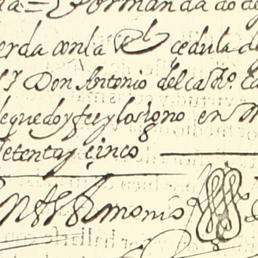 = Por manda do de
erda con la Rl cedula de
Sr Don Antonio del
que doy fee y lo signo en
setenta y cinco
Antonio